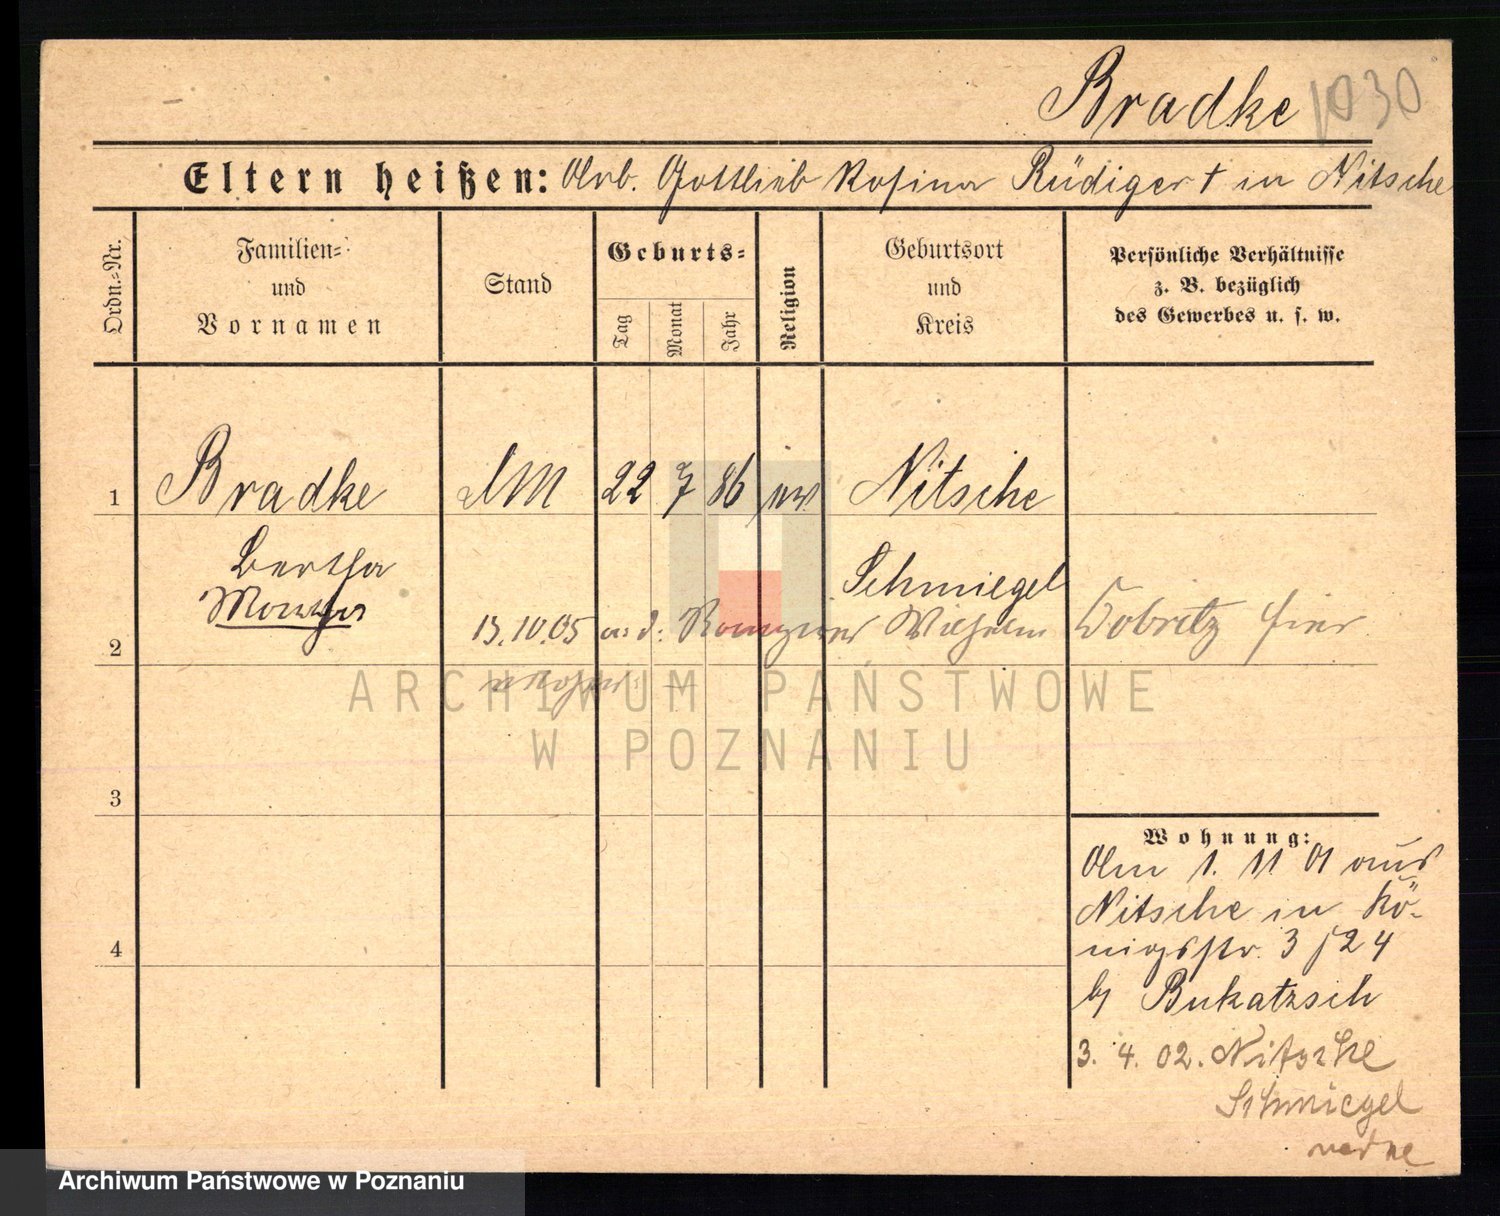 Bradke 1030
Eltern heißen: Arb. Gottlieb Rosina Rüdiger † in Nitsche
Ordn.=Nr.
Familien=
und
Vornamen
Stand
Geburts=
Tag
Monat
Jahr
Religion
Geburtsort
und
Kreis
Persönliche Verhältnisse
z. B. bezüglich
des Gewerbes u. s. w.
1 Bradke DM 22 7 86 ev. Nitsche
Bertha Schmiegel
2 13.10.05 a. d. Wilhelm hier
3
4
Wohnung:
Am 1. 11 01 aus
Nitsche in Kö-
nigsstr. 3 / 24
by Bukatzsch
3. 4. 02. Nitsche
Schmiegel
ARCHIWUM PAŃSTWOWE
W POZNANIU
Archiwum Państwowe w Poznaniu